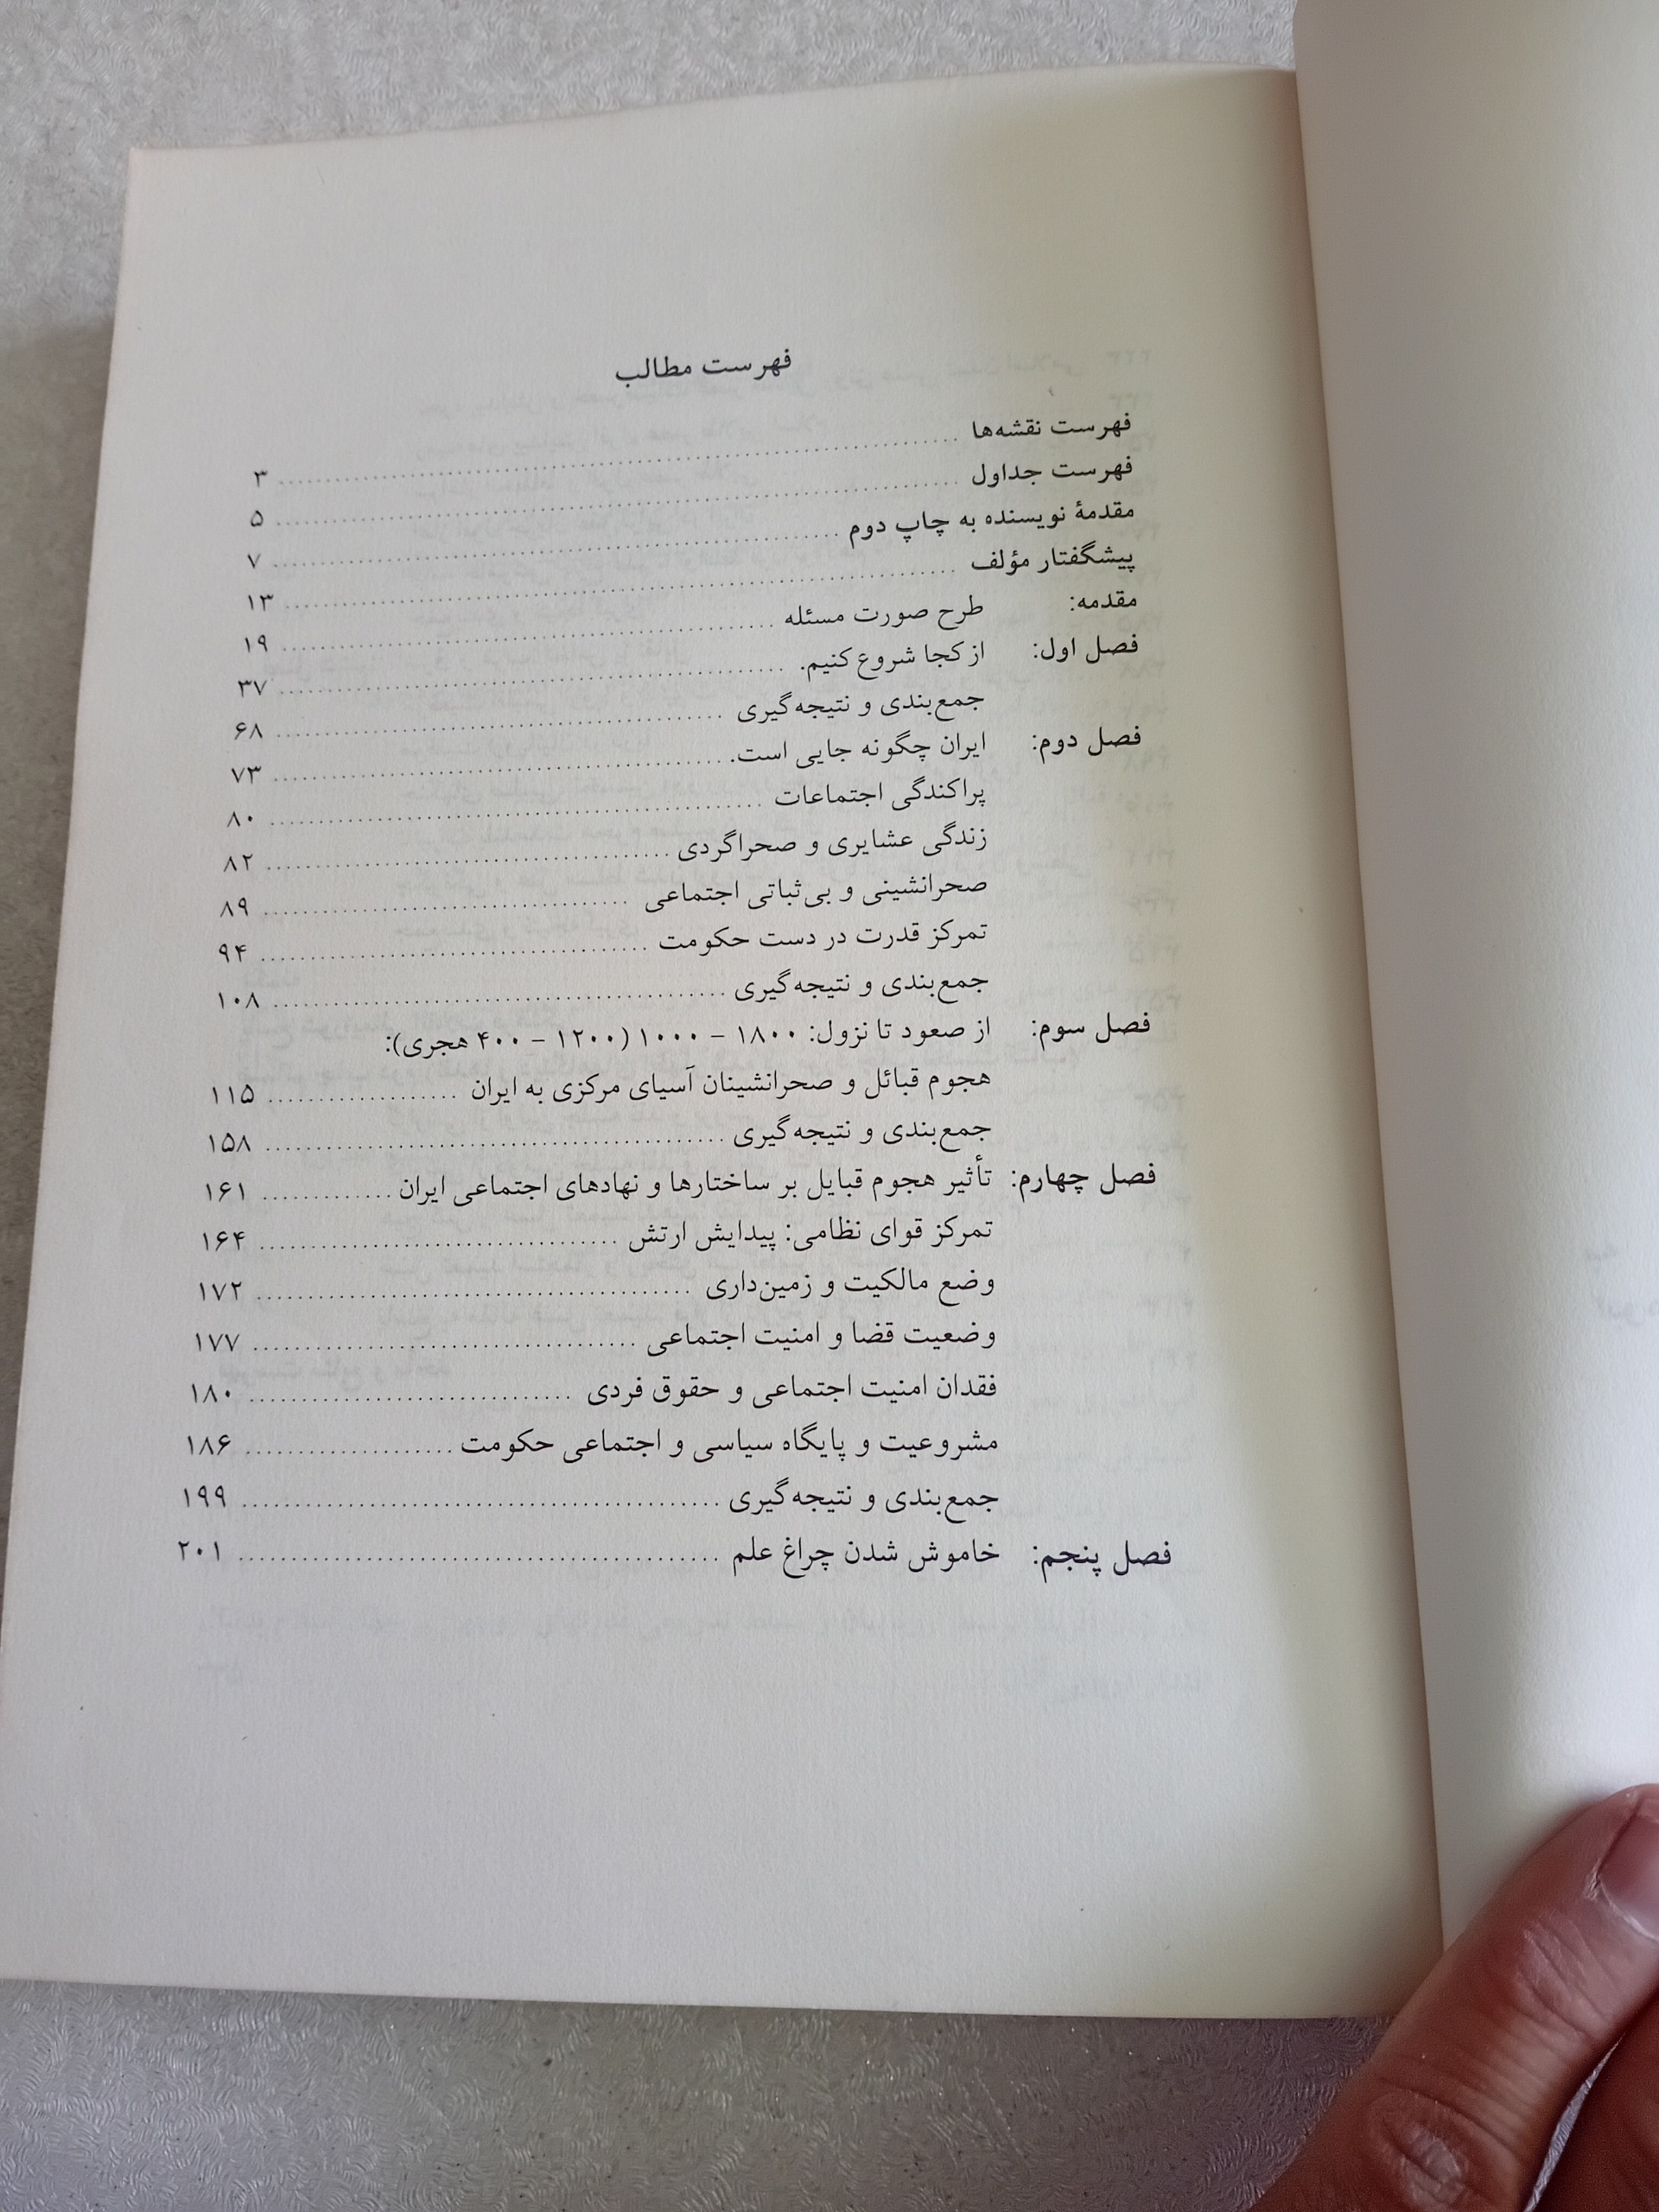 فهرست مطالب
فهرست نقشه‌ها ۳
فهرست جداول ۵
مقدمهٔ نویسنده به چاپ دوم ۷
پیشگفتار مؤلف ۱۳
مقدمه: طرح صورت مسئله ۱۹
فصل اول: از کجا شروع کنیم. ۳۷
جمع‌بندی و نتیجه‌گیری ۶۸
فصل دوم: ایران چگونه جایی است. ۷۳
پراکندگی اجتماعات ۸۰
زندگی عشایری و صحراگردی ۸۲
صحرانشینی و بی‌ثباتی اجتماعی ۸۹
تمرکز قدرت در دست حکومت ۹۴
جمع‌بندی و نتیجه‌گیری ۱۰۸
فصل سوم: از صعود تا نزول: ۱۸۰۰ – ۱۰۰۰ (۱۲۰۰ – ۴۰۰ هجری):
هجوم قبائل و صحرانشینان آسیای مرکزی به ایران ۱۱۵
جمع‌بندی و نتیجه‌گیری ۱۵۸
فصل چهارم: تأثیر هجوم قبایل بر ساختارها و نهادهای اجتماعی ایران ۱۶۱
تمرکز قوای نظامی: پیدایش ارتش ۱۶۴
وضع مالکیت و زمین‌داری ۱۷۲
وضعیت قضا و امنیت اجتماعی ۱۷۷
فقدان امنیت اجتماعی و حقوق فردی ۱۸۰
مشروعیت و پایگاه سیاسی و اجتماعی حکومت ۱۸۶
جمع‌بندی و نتیجه‌گیری ۱۹۹
فصل پنجم: خاموش شدن چراغ علم ۲۰۱